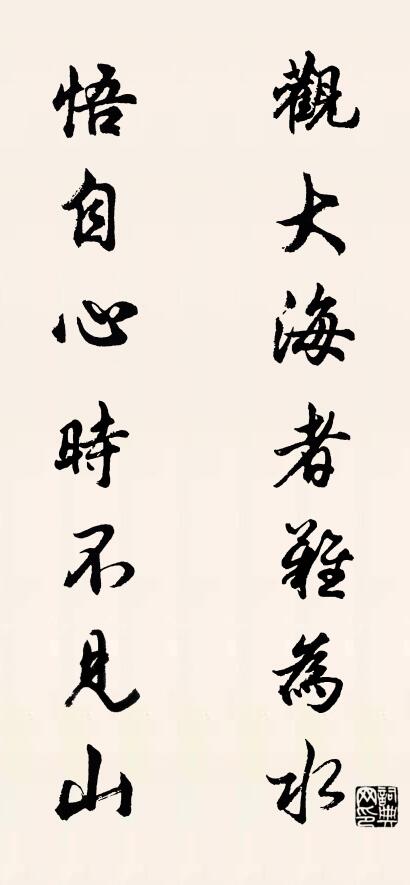 觀大海者難為水
悟自心時不見山
詞典网印